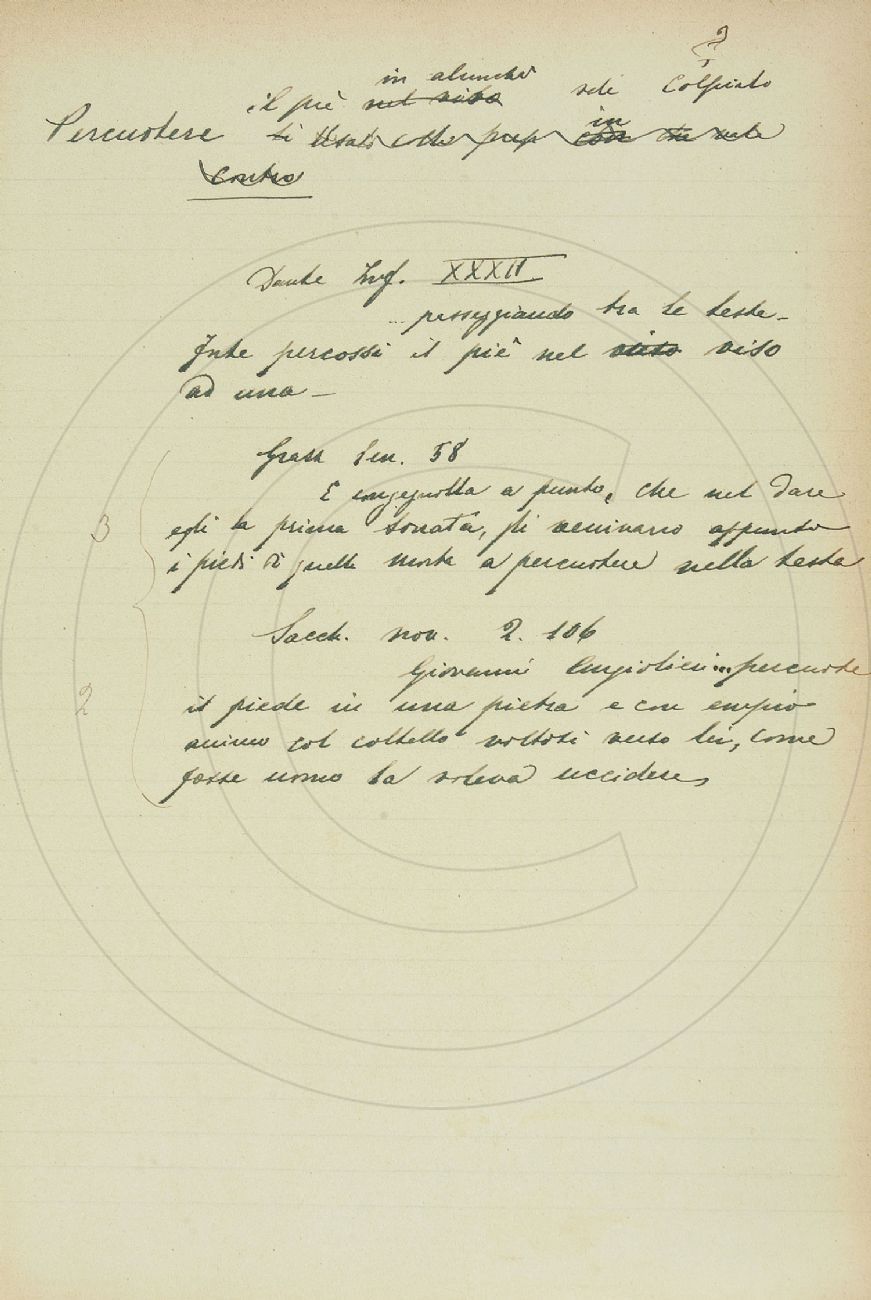 2
in alcuno vedi Colpito
Percuotere il piè nel viso
si usato colla prep in con
Contro
Dante Inf. XXXII
... passeggiando tra le teste -
Forte percossi il piè nel viso viso
ad una -
Grazz Cen. 58
E congegnolla a punto, che nel dare
egli la prima sonata, gli venivano appunto
i piedi di quella morta a percuotere nella testa
3
Sacch. nov. 2. 106
Giovanni Angiolieri ... percuote
2
il piede in una pietra e con empio
animo col coltello voltosi verso lei, come
fosse uomo la voleva uccidere,